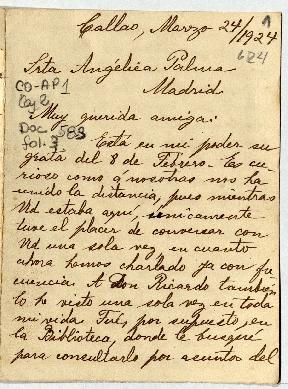 Callao, Marzo 24/1924
1
624
Srta Angélica Palma
Madrid
CO-AP1
Caj 2
Doc 583
fol. 1
Muy querida amiga:
Está en mi poder su
grata del 8 de Febrero. Es cu-
rioso como a nosotras nos ha
unido la distancia, pues mientras
Ud estaba aquí, únicamente
tuve el placer de conversar con
Ud una sola vez, en cuanto
ahora hemos charlado ya con fre
cuencia. A Don Ricardo también
lo he visto una sola vez en toda
mi vida. Fué, por supuesto, en
la Biblioteca, donde le busqué
para consultarlo por asuntos del